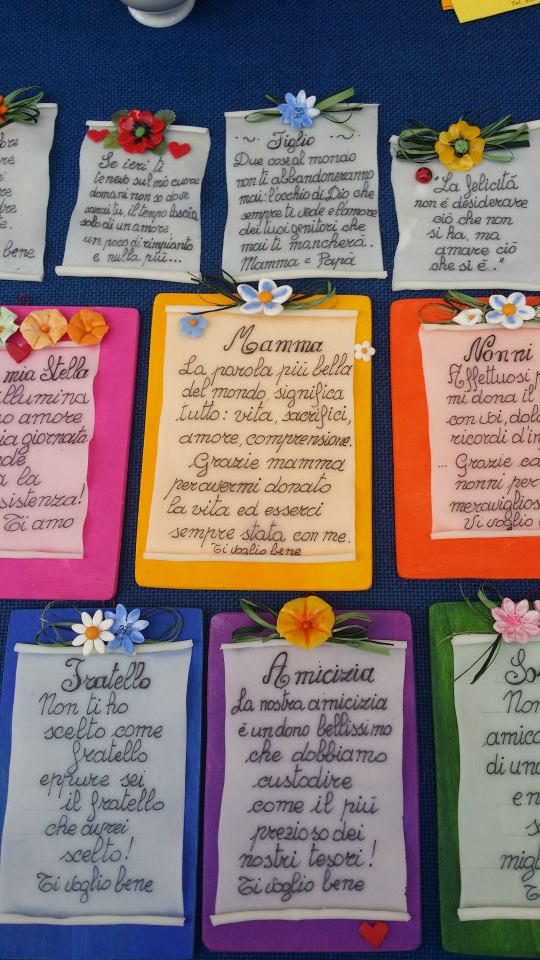 bene
Se ieri ti
tenevo sul mio cuore
domani non so dove
sarai tu, il tempo lascia
solo di un amore
un poco di rimpianto
e nulla più...
~ Figlio ~
Due cose al mondo
non ti abbandoneranno
mai: l'occhio di Dio che
sempre ti vede e l'amore
dei tuoi genitori che
mai ti mancherà..
Mamma e Papà
"La felicità
non è desiderare
ciò che non
si ha, ma
amare ciò
che si è.."
mia Stella
illumina
amore
giornata
la
Ti amo
Mamma
La parola più bella
del mondo, significa
tutto: vita, sacrifici,
amore, comprensione.
Grazie mamma
per avermi donato
la vita ed esserci
sempre stata con me.
Ti voglio bene
Nonni
Affettuosi
mi dona il
con voi,
ricordi
... Grazie
nonni per
Vi voglio
Fratello
Non ti ho
scelto come
fratello
eppure sei
il fratello
che avrei
scelto!
Ti voglio bene
Amicizia
La nostra amicizia
è un dono bellissimo
che dobbiamo
custodire
come il più
prezioso dei
nostri tesori!
Ti voglio bene